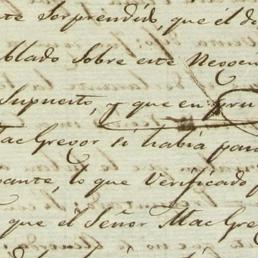 te Sorprendido, que el d
blado Sobre este Negoc
Supuesto, y que en pru
MacGregor si había pa
pante, lo que Verificado
que el Señor MacGre